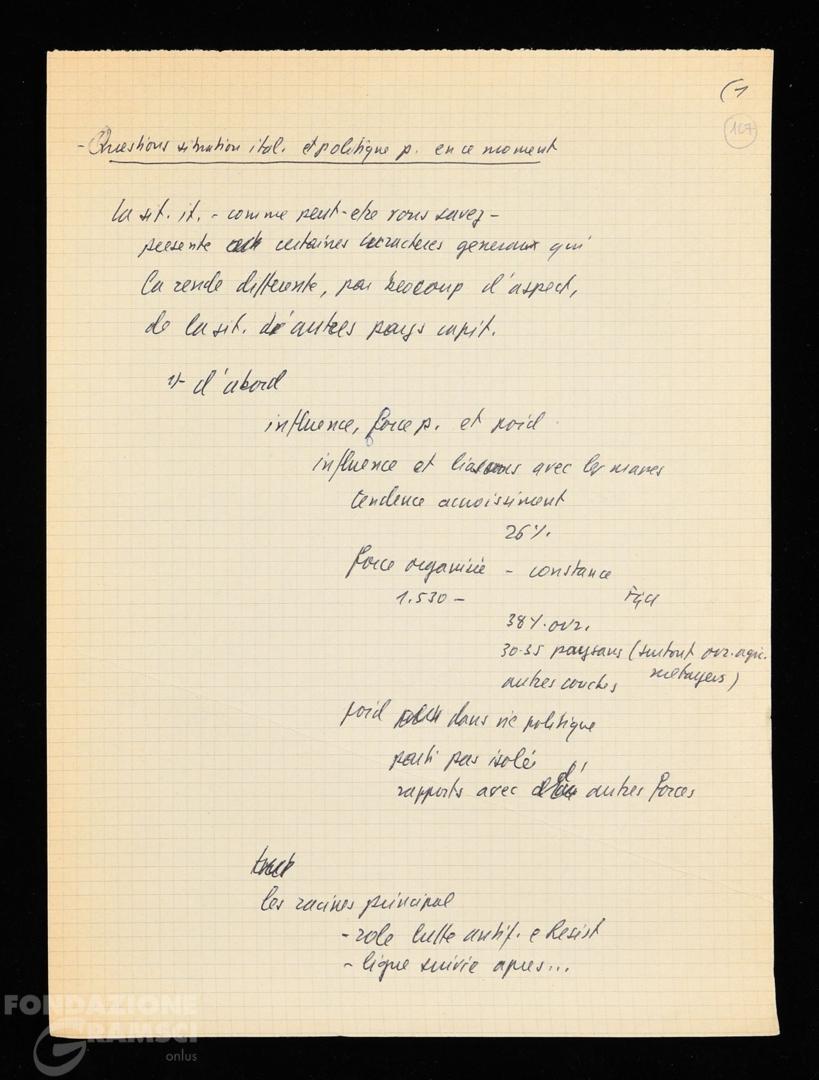 (1
167
- Questions situation ital. et politique p. en ce moment
La sit. it. - comme peut-etre vous savez -
presente certaines caracteres generaux qui
la rende differente, par beocoup d'aspect,
de la sit. d'autres pays capit.
1) - d'abord
influence, force p. et poid
influence et liasons avec les masses
tendence acroissiment
26%.
force organisée - constance
1.530 - FGCI
38% ouv.
30-35 paysans (surtout ouv. agric.
autres couches metayers)
poid dans vie politique
parti pas isolé
rapports avec d'autres forces
les racines principal
- role lutte antif. e Resist
- ligne suivie apres...
FONDAZIONE
GRAMSCI
onlus